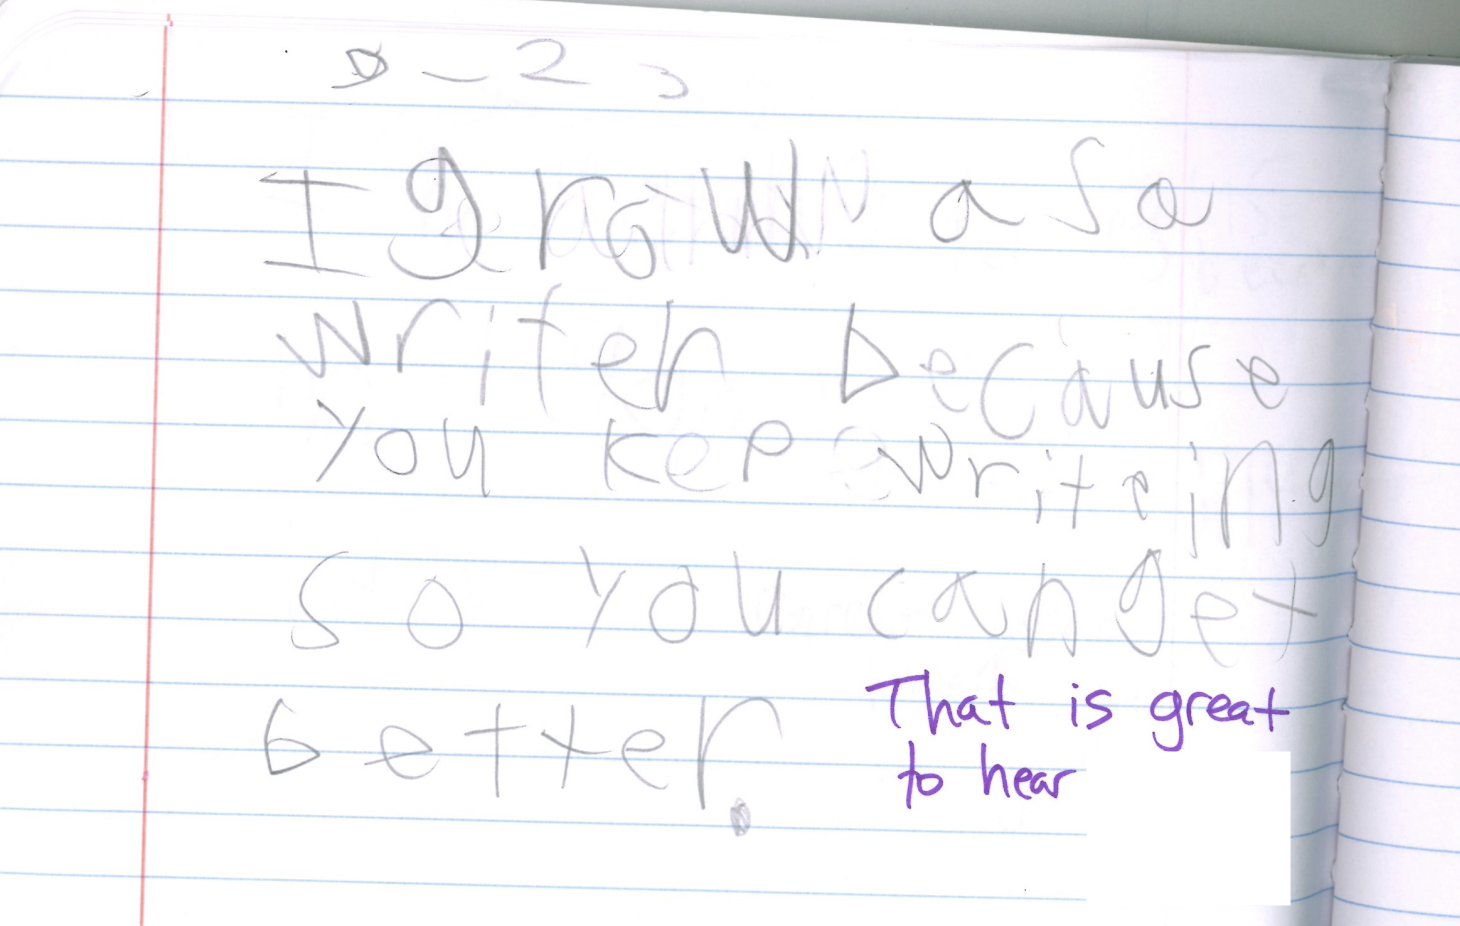 I grow as a
writer because
you kep writeing
so you can get
better.
That is great
to hear